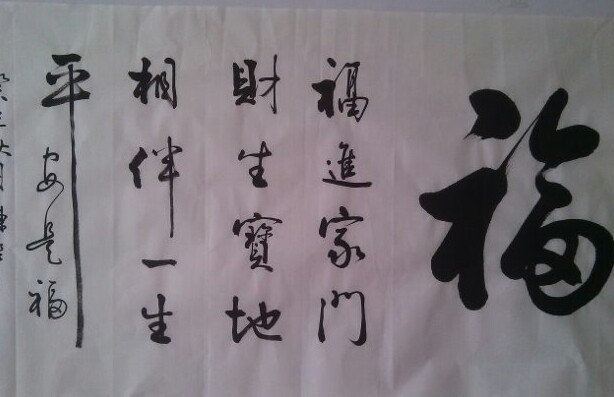 福
福進家門
財生寶地
相伴一生
平安是福